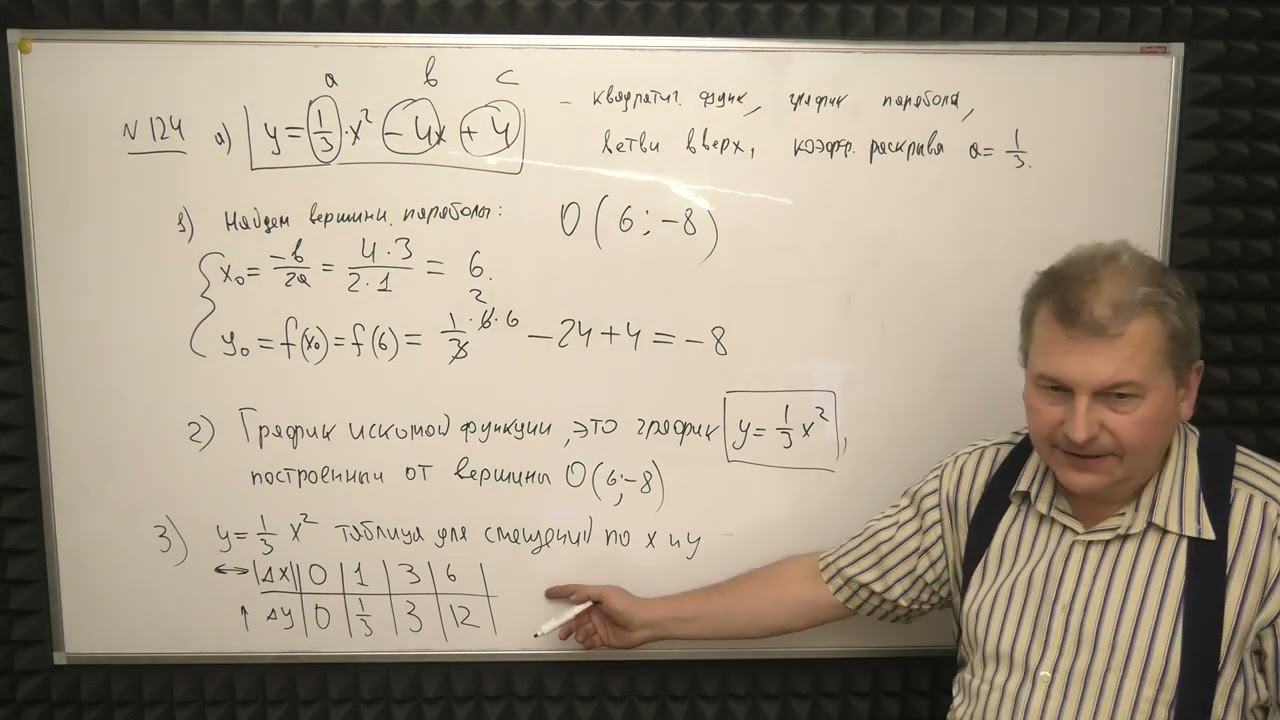 а в с
N 124 а) y = 1/3 · x² - 4x + 4 - квадратич. функ, график парабола,
ветви вверх, коэфф. раскрыва a = 1/3.
1) Найдем вершину параболы: O(6; -8)
x₀ = -в/2а = 4·3/2·1 = 6.
y₀ = f(x₀) = f(6) = 1/3 · 6 · 6 - 24 + 4 = -8
2
2) График искомой функции, это график y = 1/3 x²,
построенный от вершины O(6; -8)
3) y = 1/3 x² таблица для смещений по x и y
↔ Δx 0 1 3 6
↑ Δy 0 1/3 3 12